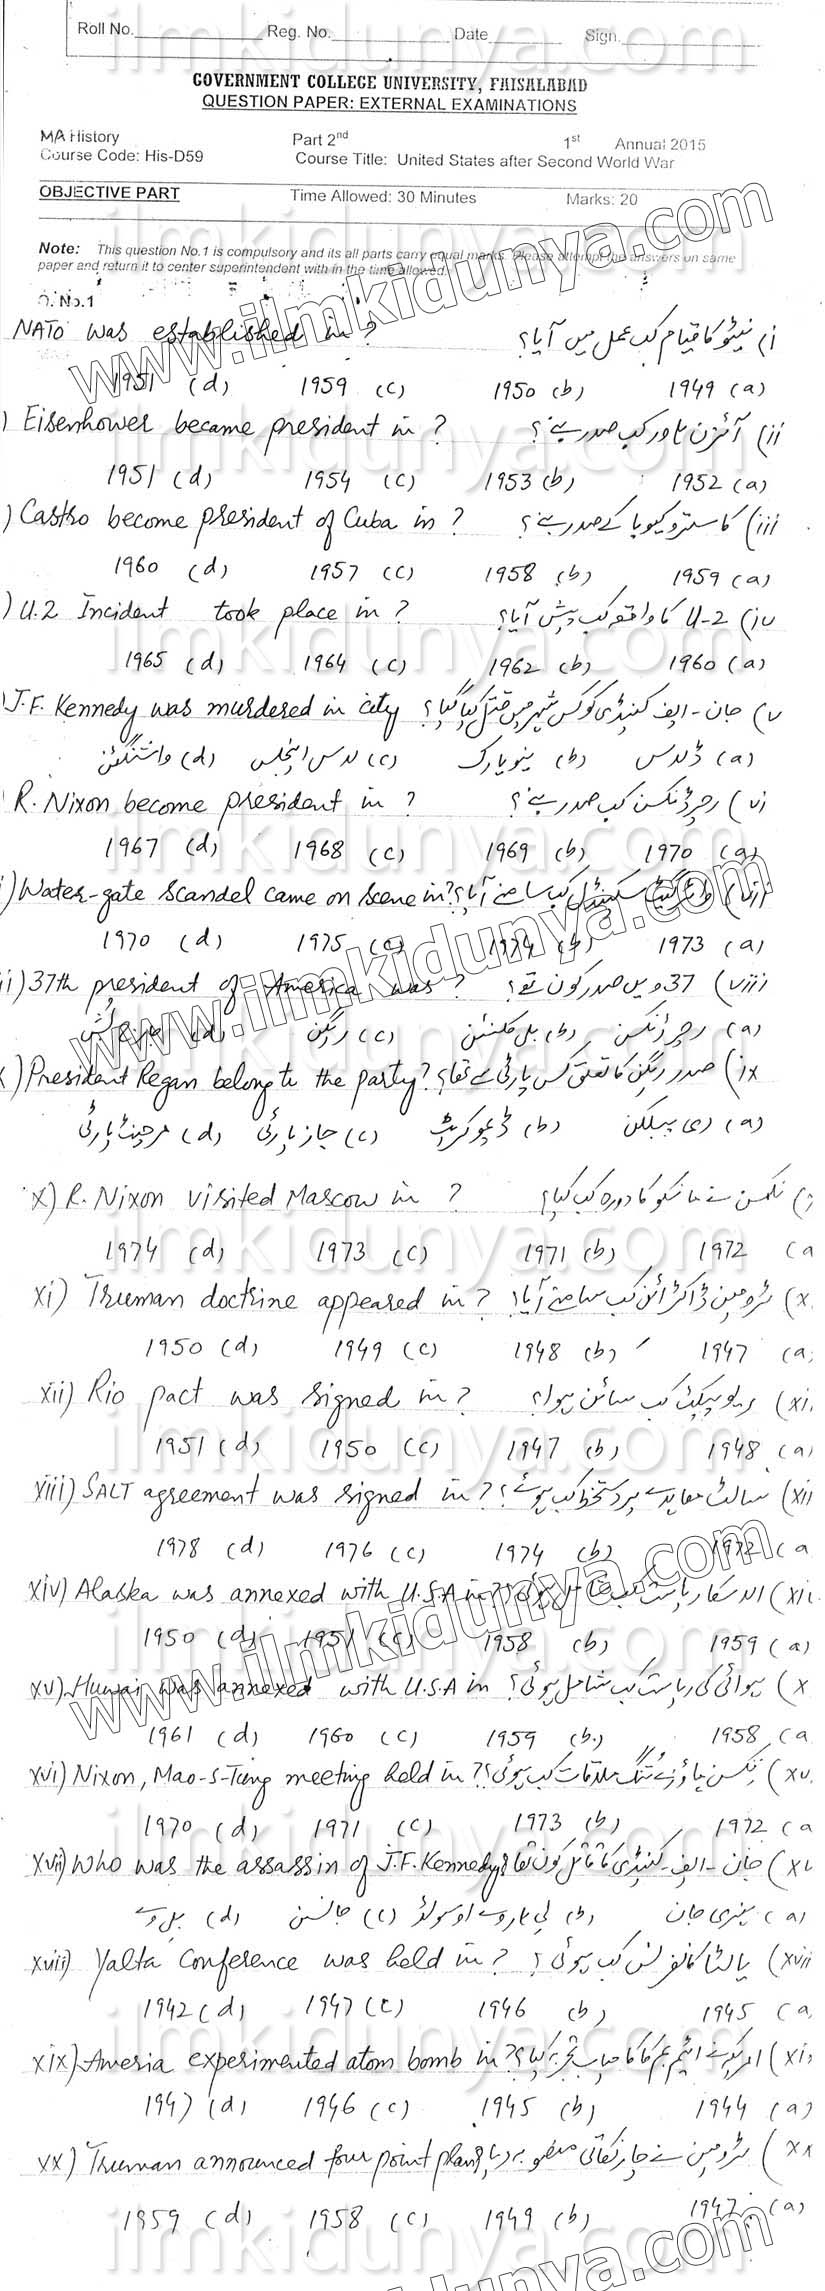 Roll No. Reg. No. Date Sign.
GOVERNMENT COLLEGE UNIVERSITY, FAISALABAD
QUESTION PAPER: EXTERNAL EXAMINATIONS
MA History Part 2nd 1st Annual 2015
Course Code: His-D59 Course Title: United States after Second World War
OBJECTIVE PART Time Allowed: 30 Minutes Marks: 20
Note: This question No.1 is compulsory and its all parts carry equal marks. Please attempt the answers on same
paper and return it to center superintendent with in the time allowed.
Q. No.1
NATO was established in? نیٹو کا قیام کب عمل میں آیا؟ (i
1951 (d) 1959 (c) 1950 (b) 1949 (a)
) Eisenhower became president in? آئزن ہاور کب صدر بنے؟ (ii
1951 (d) 1954 (c) 1953 (b) 1952 (a)
) Castro become president of Cuba in? کاسترو کیوبا کے صدر بنے؟ (iii
1960 (d) 1957 (c) 1958 (b) 1959 (a)
) U.2 Incident took place in? U-2 کا واقعہ کب پیش آیا؟ (iv
1965 (d) 1964 (c) 1962 (b) 1960 (a)
) J.F. Kennedy was murdered in city جان-ایف کنیڈی کو کس شہر میں قتل کیا گیا؟ (v
(a) ڈلاس (b) نیویارک (c) لاس اینجلس (d) واشنگٹن
R. Nixon become president in? رچرڈ نکسن کب صدر بنے؟ (vi
1967 (d) 1968 (c) 1969 (b) 1970 (a)
i) Water-gate scandel came on scene in? واٹر گیٹ سکینڈل کب سامنے آیا؟ (vii
1970 (d) 1975 (c) 1974 (b) 1973 (a)
ii) 37th president of America was? 37 ویں صدر کون تھے؟ (viii
(a) رچرڈ نکسن (b) بل کلنٹن (c) ریگن (d) جارج بش
) President Regan belong to the party? صدر ریگن کا تعلق کس پارٹی سے تھا؟ (ix
(a) ری پبلکن (b) ڈیموکریٹ (c) جاز پارٹی (d) مرچنٹ پارٹی
x) R. Nixon visited Mascow in? نکسن نے ماسکو کا دورہ کب کیا؟
1974 (d) 1973 (c) 1971 (b) 1972 (a
xi) Truman doctrine appeared in? ٹرومین ڈاکٹرائن کب سامنے آیا؟ (x
1950 (d) 1949 (c) 1948 (b) 1947 (a)
xii) Rio pact was signed in? ریو پیکٹ کب سائن ہوا؟ (xi
1951 (d) 1950 (c) 1947 (b) 1948 (a)
xiii) SALT agreement was signed in? سالٹ معاہدے پر دستخط کب ہوئے؟ (xii
1978 (d) 1976 (c) 1974 (b) 1972 (a
xiv) Alaska was annexed with U.S.A in? الاسکا ریاست کب شامل ہوئی؟ (xii
1950 (d) 1951 (c) 1958 (b) 1959 (a)
xv) Huwai was annexed with U.S.A in ہوائی کی ریاست کب شامل ہوئی؟ (x
1961 (d) 1960 (c) 1959 (b) 1958 (a
xvi) Nixon, Mao-s-Tung meeting held in? نکسن ماؤزے تنگ ملاقات کب ہوئی؟ (xv
1970 (d) 1971 (c) 1973 (b) 1972 (a
xvii) Who was the assassin of J.F. Kennedy? جان-ایف-کنیڈی کا قاتل کون تھا (xv
(a) ہنری جان (b) لی ہاروے اوسولڈ (c) جانسن (d) بل وے
xviii) Yalta Conference was held in? یالٹا کانفرنس کب ہوئی؟ (xvii
1942 (d) 1947 (c) 1946 (b) 1945 (a
xix) Ameria experimented atom bomb in? امریکہ نے ایٹم بم کا کامیاب تجربہ کیا؟ (xi
1947 (d) 1946 (c) 1945 (b) 1944 (a)
xx) Truman announced four point plan? ٹرومین نے چار نکاتی منصوبہ دیا؟ (xx
1959 (d) 1958 (c) 1949 (b) 1947 (a)
www.ilmkidunya.com
www.ilmkidunya.com
www.ilmkidunya.com
www.ilmkidunya.com